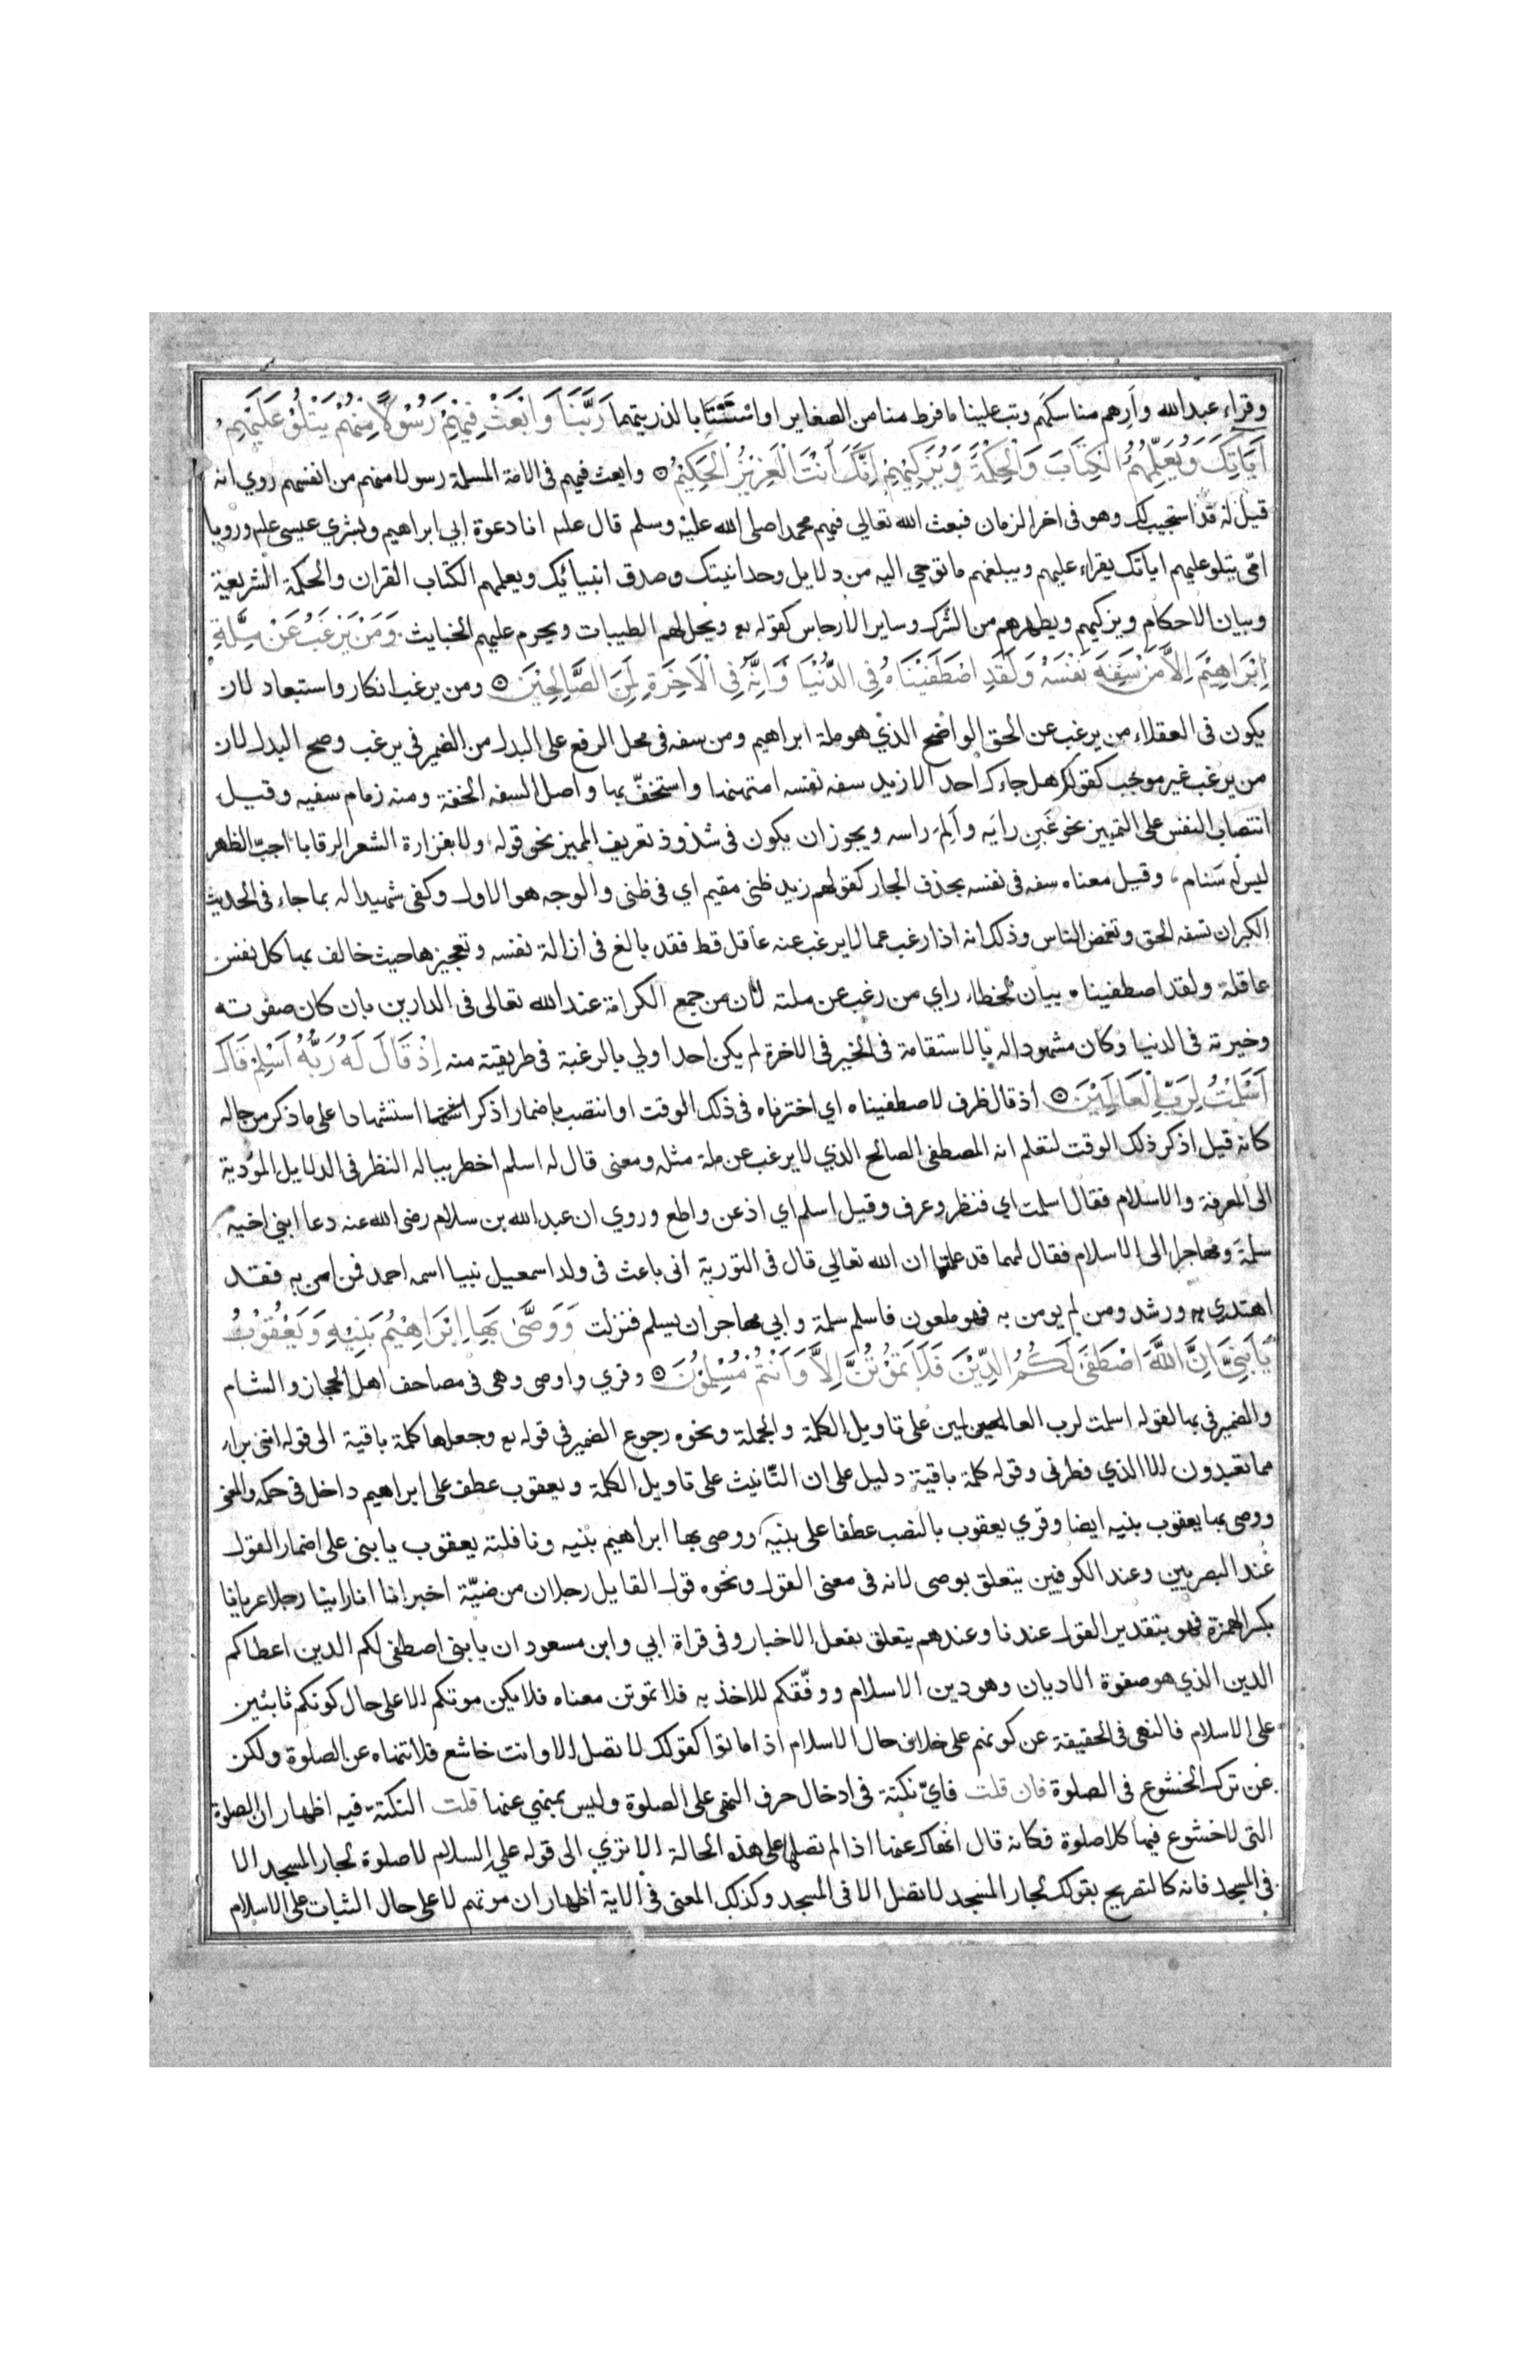 وقراء عبدالله وارهم مناسكهم وتب علينا ما فرط منا من الصغاير او استتابا لذريتهما رَبَّنَا وَابْعَثْ فِيْهِمْ رَسُوْلًا مِنْهُمْ يَتْلُوْ عَلَيْهِمْ
اٰيَاتِكَ وَيُعَلِّمُهُمُ الْكِتَابَ وَالْحِكْمَةَ وَيُزَكِّيْهِمْ اِنَّكَ اَنْتَ الْعَزِيْزُ الْحَكِيْمُ وابعث فيهم في الامة المسلمة رسولا منهم من انفسهم روي انه
قيل له قد استجيب لك وهو في اخر الزمان فبعث الله تعالى فيهم محمدا صلى الله عليه وسلم قال علم انا دعوة ابي ابراهيم وبشري عيسى علم ورويا
امي يتلو عليهم اياتك يقراء عليهم ويبلغهم ما توحي اليه من دلايل وحدانيتك وصدق انبيائك ويعلمهم الكتاب القران والحكمة الشريعة
وبيان الاحكام ويزكيهم ويطهرهم من الشرك وساير الارجاس كقوله تع ويحل لهم الطيبات ويحرم عليهم الخبايث وَمَنْ يَرْغَبُ عَنْ مِلَّةِ
اِبْرَاهِيْمَ اِلَّا مَنْ سَفِهَ نَفْسَهُ وَلَقَدِ اصْطَفَيْنَاهُ فِي الدُّنْيَا وَاِنَّهُ فِي الْاٰخِرَةِ لَمِنَ الصَّالِحِيْنَ ومن يرغب انكار واستبعاد لان
يكون في العقلاء من يرغب عن الحق الواضح الذي هو ملة ابراهيم ومن سفه في محل الرفع على البدل من الضمير في يرغب وصح البدل لان
من يرغب غير موجب كقولك هل جاءك احد الا زيد سفه نفسه امتهنها واستخف بها واصل السفه الخفة ومنه زمام سفيه وقيل
انتصاب النفس على التمييز نحو غبن رايه والم راسه ويجوز ان يكون في شذوذ تعريف المميز نحو قوله ولا بفزارة الشعر الرقابا اجب الظهر
ليس له سنام وقيل معناه سفه في نفسه بحذف الجار كقولهم زيد ظني مقيم اي في ظني والوجه هو الاول وكفى شهيدا له بما جاء في الحديث
الكبر ان تسفه الحق وتغمض الناس وذلك انه اذا رغب عما لا يرغب عنه عاقل قط فقد بالغ في ازالة نفسه وتعجيزها حيث خالف بها كل نفس
عاقلة ولقد اصطفيناه بيان لخطاء راي من رغب عن ملته لان من جمع الكرامة عند الله تعالى في الدارين بان كان صفوته
وخيرته في الدنيا وكان مشهودا له بالاستقامة في الخير في الاخرة لم يكن احد اولي بالرغبة في طريقته منه اِذْ قَالَ لَهُ رَبُّهُ اَسْلِمْ قَالَ
اَسْلَمْتُ لِرَبِّ الْعَالَمِيْنَ اذ قال ظرف لاصطفيناه اي اخترناه في ذلك الوقت او انتصب باضمار اذكر استشهادا على ما ذكر من حاله
كانه قيل اذكر ذلك الوقت لتعلم انه المصطفى الصالح الذي لا يرغب عن ملة مثله ومعنى قال له اسلم اخطر بباله النظر في الدلايل المؤدية
الى المعرفة والاسلام فقال اسلمت اي فنظر وعرف وقيل اسلم اي اذعن واطع وروي ان عبد الله بن سلام رضى الله عنه دعا ابني اخيه
سلمة ومهاجرا الى الاسلام فقال لهما قد علمتما ان الله تعالي قال في التورية اني باعث في ولد اسمعيل نبيا اسمه احمد فمن امن به فقد
اهتدي به ورشد ومن لم يومن به فهو ملعون فاسلم سلمة وابي مهاجر ان يسلم فنزلت وَوَصَّى بِهَا اِبْرَاهِيْمُ بَنِيْهِ وَيَعْقُوْبُ
يَا بَنِيَّ اِنَّ اللّٰهَ اصْطَفٰى لَكُمُ الدِّيْنَ فَلَا تَمُوْتُنَّ اِلَّا وَاَنْتُمْ مُسْلِمُوْنَ وقري واوصى وهي في مصاحف اهل الحجاز والشام
والضمير في بها لقوله اسلمت لرب العالمين على تاويل الكلمة والجملة ونحوه رجوع الضمير في قوله تع وجعلها كلمة باقية الى قوله انني براء
مما تعبدون الا الذي فطرني وقوله كلمة باقية دليل على ان التانيث على تاويل الكلمة ويعقوب عطف على ابراهيم داخل في حكمه والمعنى
ووصى بها يعقوب بنيه ايضا وقري يعقوب بالنصب عطفا على بنيه ووصى بها ابراهيم بنيه ونافلته يعقوب يا بنى على اضمار القول
عند البصريين وعند الكوفيين يتعلق بوصى لانه في معنى القول ونحوه قول القايل رجلان من ضبة اخبرانا انا راينا رجلا عريانا
بكسر الهمزة فهو بتقدير القول عندنا وعندهم يتعلق بفعل الاخبار وفي قراة ابي وابن مسعود ان يا بنى اصطفى لكم الدين اعطاكم
الدين الذي هو صفوة الاديان وهو دين الاسلام ووفقكم للاخذ به فلا تموتن معناه فلا يكن موتكم الا على حال كونكم ثابتين
على الاسلام فالنهي في الحقيقة عن كونهم على خلاف حال الاسلام اذا ماتوا كقولك لا تصل الا وانت خاشع فلا تنهاه عن الصلوة ولكن
عن ترك الخشوع في الصلوة فان قلت فاي نكتة في ادخال حرف النهي على الصلوة وليس بمنهي عنها قلت النكتة فيه اظهار ان الصلوة
التي لا خشوع فيها كلا صلوة فكانه قال انهاك عنها اذا لم تصلها على هذه الحالة الا تري الى قوله عليه السلام لا صلوة لجار المسجد الا
في المسجد فانه كالتصريح بقولك لجار المسجد لا تصل الا في المسجد وكذلك المعنى في الاية اظهار ان موتهم لا على حال الثبات على الاسلام